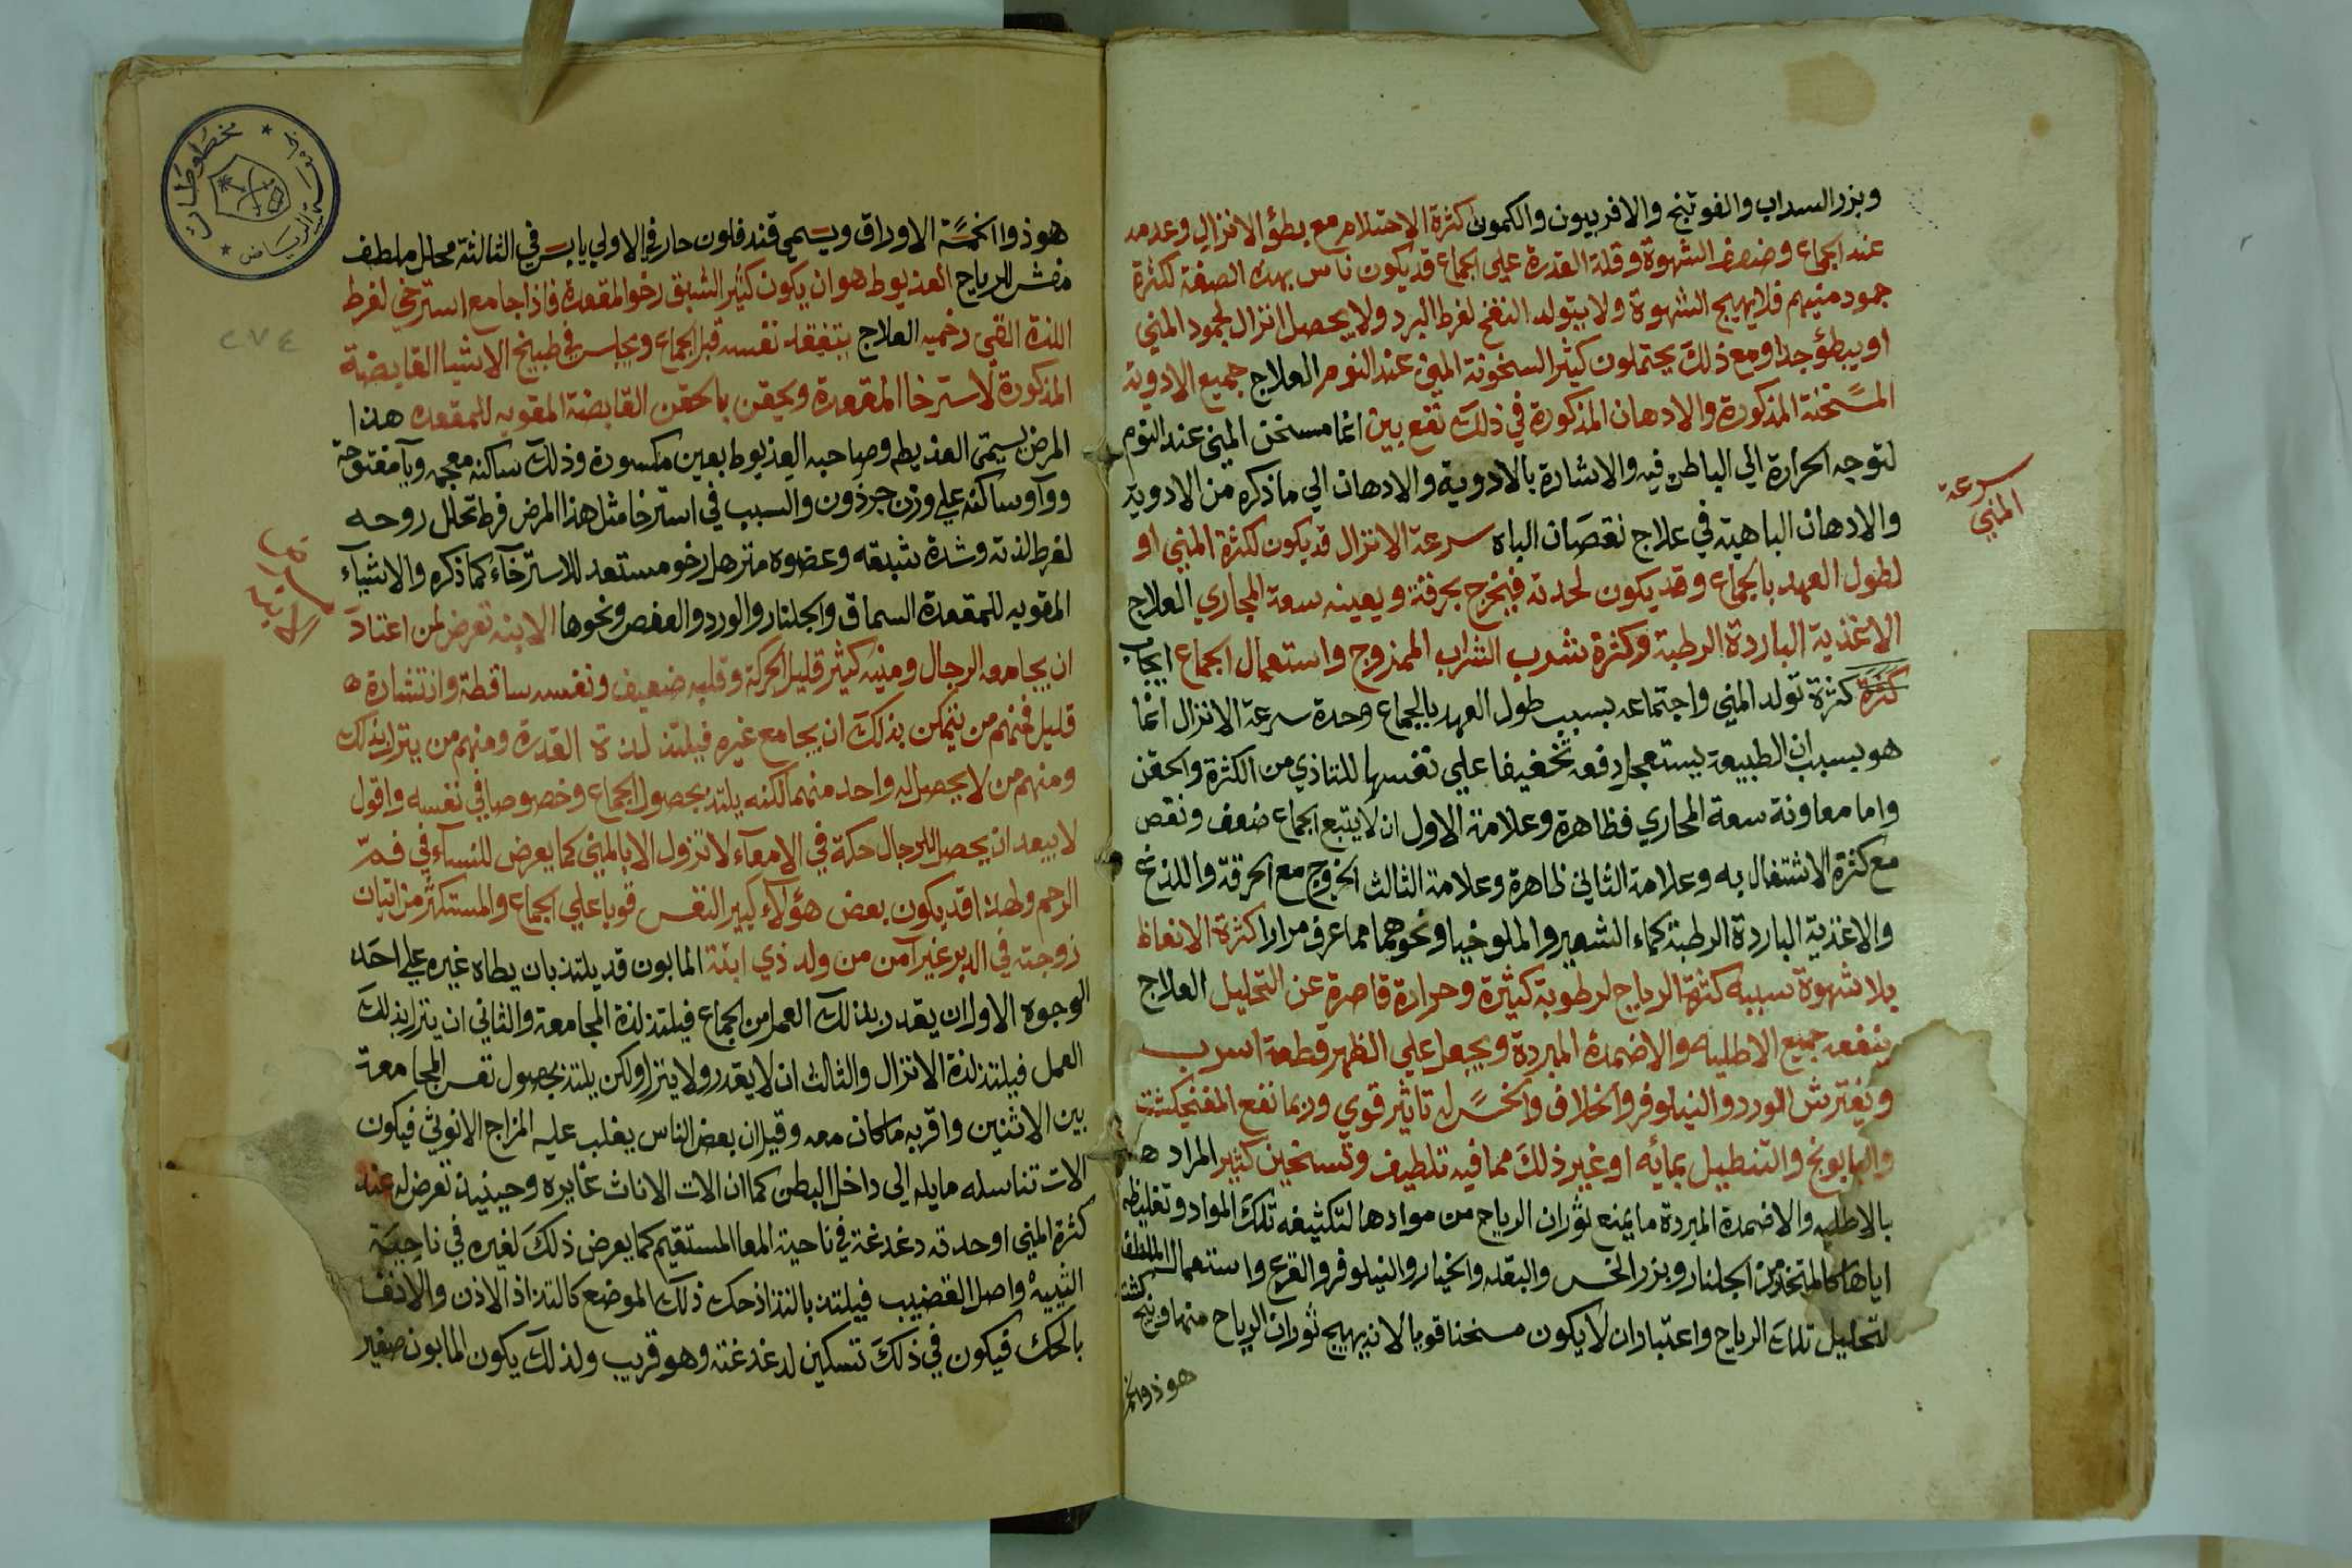 وبزر السداب والفوتنج والافربيون والكمون كثرة الاحتلام مع بطؤ الانزال وعدمه
عند الجماع وضعف الشهوة وقلة القدرة علي الجماع قد يكون ناس بهذه الصفة لكثرة
جمود منيهم فلا يهيج الشهوة ولا يتولد النفخ لفرط البرد ولا يحصل انزال لجمود المني
او يبطؤ جدا ومع ذلك يحتملون كثيرا لسخونة المني عند النوم العلاج جميع الادوية
المسخنة المذكورة والادهان المذكورة في ذلك نفع بين انما مسخن المني عند النوم
لتوجه الحرارة الي الباطن فيه والاشارة بالادوية والادهان الي ما ذكره من الادوية
والادهان الباهية في علاج نقصان الباه سرعة الانزال قد يكون لكثرة المني او
سرعة
المني
لطول العهد بالجماع وقد يكون لحدته فيخرج بحرقة ويعينه سعة المجاري العلاج
الاغذية الباردة الرطبة وكثرة شرب الشراب الممزوج واستعمال الجماع ايجاب
كثرة كثرة تولد المني واجتماعه بسبب طول العهد بالجماع وحدة سرعة الانزال انما
هو بسبب ان الطبيعة يستعجل دفعه تخفيفا علي نفسها للتاذي من الكثرة والحقن
واما معاونة سعة المجاري فظاهرة وعلامة الاول ان لا يتبع الجماع ضعف ونقص
مع كثرة الاشتغال به وعلامة الثاني ظاهرة وعلامة الثالث الخروج مع الحرقة واللذع
والاغذية الباردة الرطبة كماء الشعير والملوخيا ونحوهما مما عرف مرارا كثرة الانعاظ
بلا شهوة سببه كثرة الرياح لرطوبة كثيرة وحرارة قاصرة عن التحليل العلاج
ينفعه جميع الاطليه والاضمدة المبردة ويجعل علي الظهر قطعة اسرب
ويفترش الورد والنيلوفر والخلاف والخس له تاثير قوي وربما نفع الفنجنكشت
والبابونج والتنطيل بمائه او غير ذلك مما فيه تلطيف وتسخين كثير المراد هنا
بالاطليه والاضمدة المبردة ما يمنع ثوران الرياح من موادها لتكثيفه تلك المواد وتغليظه
اياها كالمتخذ من الجلنار وبزر الخس والبقله والخيار والنيلوفر والقرع واستعمال الملطف
لتحليل تلك الرياح واعتبار ان لا يكون مسخنا قويا لانه يهيج ثوران الرياح منها وفنج كشت
هو ذو الخمسة
مخطوطات
الرياض
٢٧٤
هو ذوا الخمسة الاوراق ويسمي قند فلون حار في الاولي يابس في الثالثة محلل ملطف
مفش للرياح العذيوط هو ان يكون كثير الشبق رخو المقعدة فاذا جامع استرخي لفرط
اللذة القي رخميه العلاج يتفقد نفسه قبل الجماع ويجلس في طبيخ الاشيا القابضة
المذكورة لاسترخا المقعدة ويحقن بالحقن القابضة المقويه للمقعده هذا
المرض يسمي العذيطه وصاحبه العذيوط بعين مكسورة وذلك ساكنه معجمه ويآ مفتوحة
ووآو ساكنه علي وزن جرذون والسبب في استرخا مثل هذا المرض فرط تحلل روحه
لفرط لذته وشدة شبقه وعضوه مترهل رخو مستعد للاسترخآء كما ذكره والاشيآء
المقويه للمقعدة السماق والجلنار والورد والعفص ونحوها الابنه تعرض لمن اعتاد
الابنه
ان يجامعه الرجال ومنيه كثير قليل الحركة وقلبه ضعيف ونفسه ساقطة وانتشاره
قليل فمنهم من يتمكن بذلك ان يجامع غيره فيلتذ لذة القدرة ومنهم من ينزل بذلك
ومنهم من لا يحصل له واحد منهما لكنه يلتذ بحصول الجماع وخصوصا في نفسه واقول
لا يبعد ان يحصل للرجال حكة في الامعآء لا تزول الا بالمني كما يعرض للنسآء في فم
الرحم ولهذا قد يكون بعض هؤلآء كبير النفس قويا علي الجماع والمستكثر من اتيان
زوجته في الدبر غير آمن من ولد ذي ابنة المابون قد يلتذ بان يطاه غيره علي احد
الوجوه الاول ان يقدر بذلك العمل من الجماع فيلتذ لذة المجامعة والثاني ان ينزل بذلك
العمل فيلتذ لذة الانزال والثالث ان لا يقدر ولا ينزل ولكن يلتذ بحصول نفس المجامعة
بين الاثنين واقربه ما كان معه وقيل ان بعض الناس يغلب عليه المزاج الانوثي فيكون
الات تناسله مايله الي داخل البطن كما ان الات الاناث غايره وحينيذ تعرض له عند
كثرة المني او حدته دغدغة في ناحية المعا المستقيم كما يعرض ذلك لغيره في ناحية
الثنيه واصل القضيب فيلتذ بالتذاذ حك ذلك الموضع كالتذاذ الاذن والانف
بالحك فيكون في ذلك تسكين لدغدغته وهو قريب ولذلك يكون المابون صغير